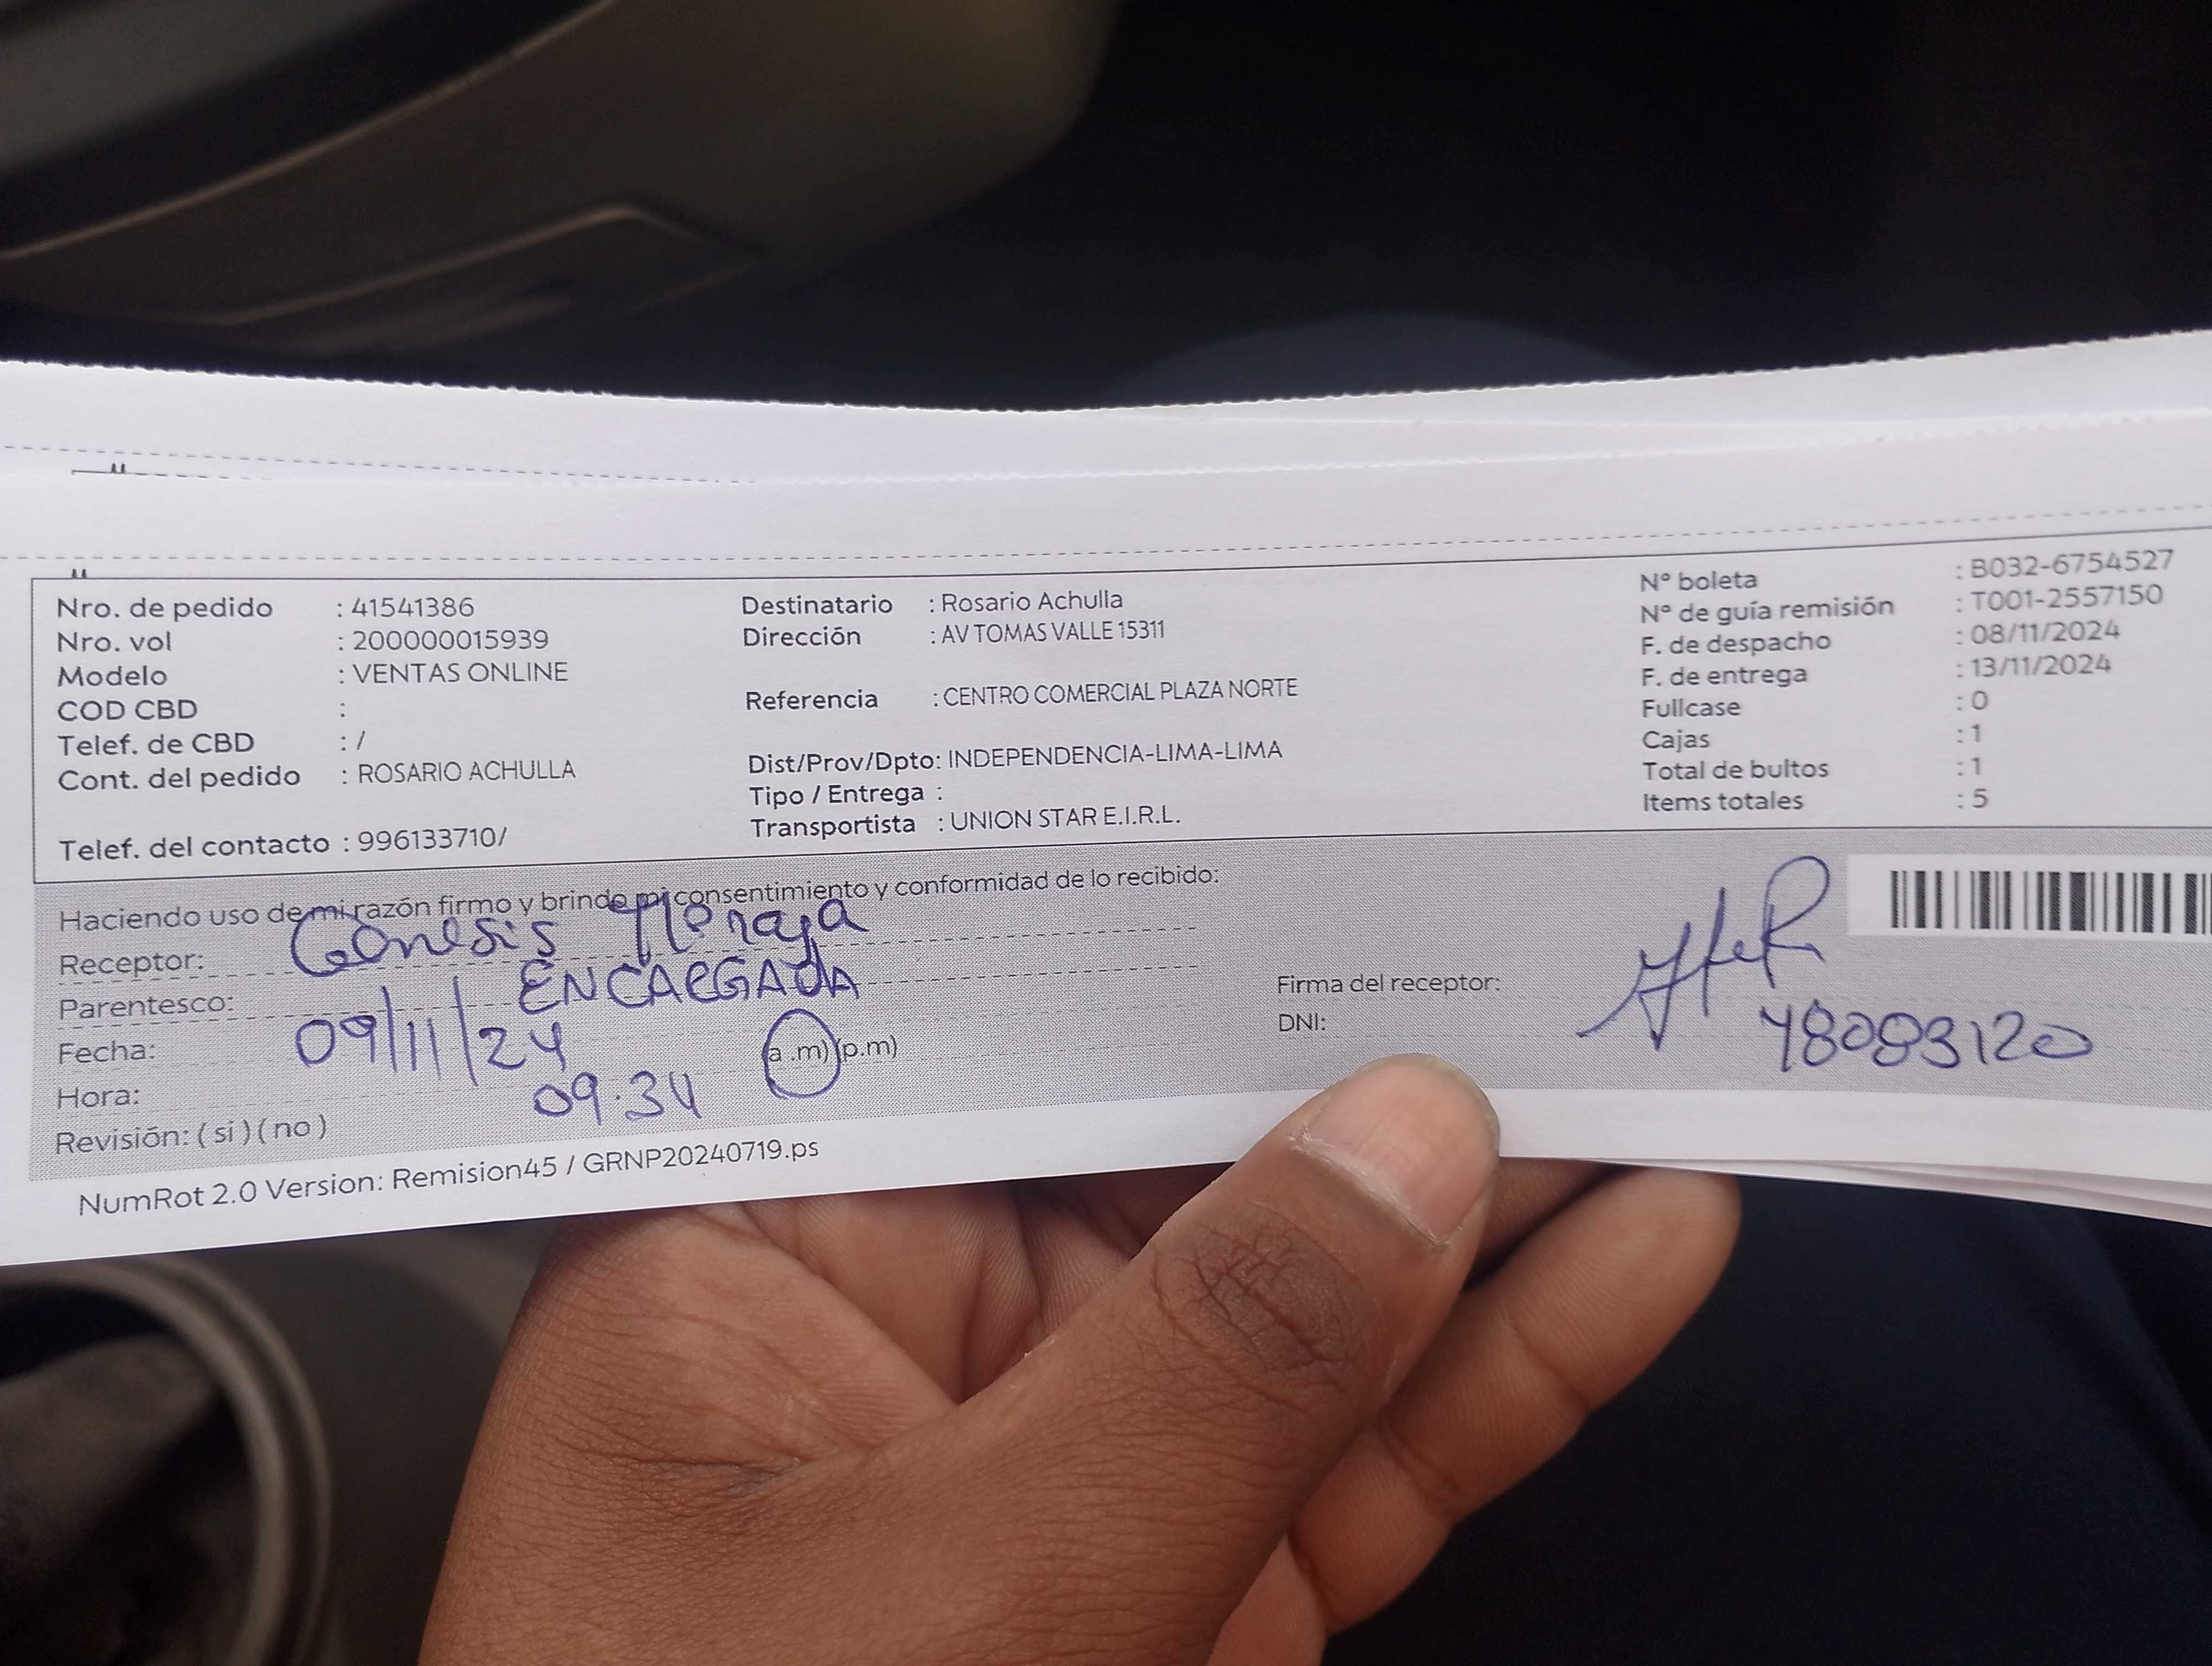 Nro. de pedido : 41541386
Nro. vol : 200000015939
Modelo : VENTAS ONLINE
COD CBD :
Telef. de CBD : /
Cont. del pedido : ROSARIO ACHULLA
Telef. del contacto : 996133710/
Destinatario : Rosario Achulla
Dirección : AV TOMAS VALLE 15311
Referencia : CENTRO COMERCIAL PLAZA NORTE
Dist/Prov/Dpto: INDEPENDENCIA-LIMA-LIMA
Tipo / Entrega :
Transportista : UNION STAR E.I.R.L.
N° boleta : B032-6754527
N° de guía remisión : T001-2557150
F. de despacho : 08/11/2024
F. de entrega : 13/11/2024
Fullcase : 0
Cajas : 1
Total de bultos : 1
Items totales : 5
Haciendo uso de mi razón firmo y brindo mi consentimiento y conformidad de lo recibido:
Receptor: Genesis
Parentesco: ENCARGADA
Fecha: 09/11/24
Hora: 09:34 (a .m) (p.m)
Revisión: ( si ) ( no )
Firma del receptor:
DNI: 48083120
NumRot 2.0 Version: Remision45 / GRNP20240719.ps